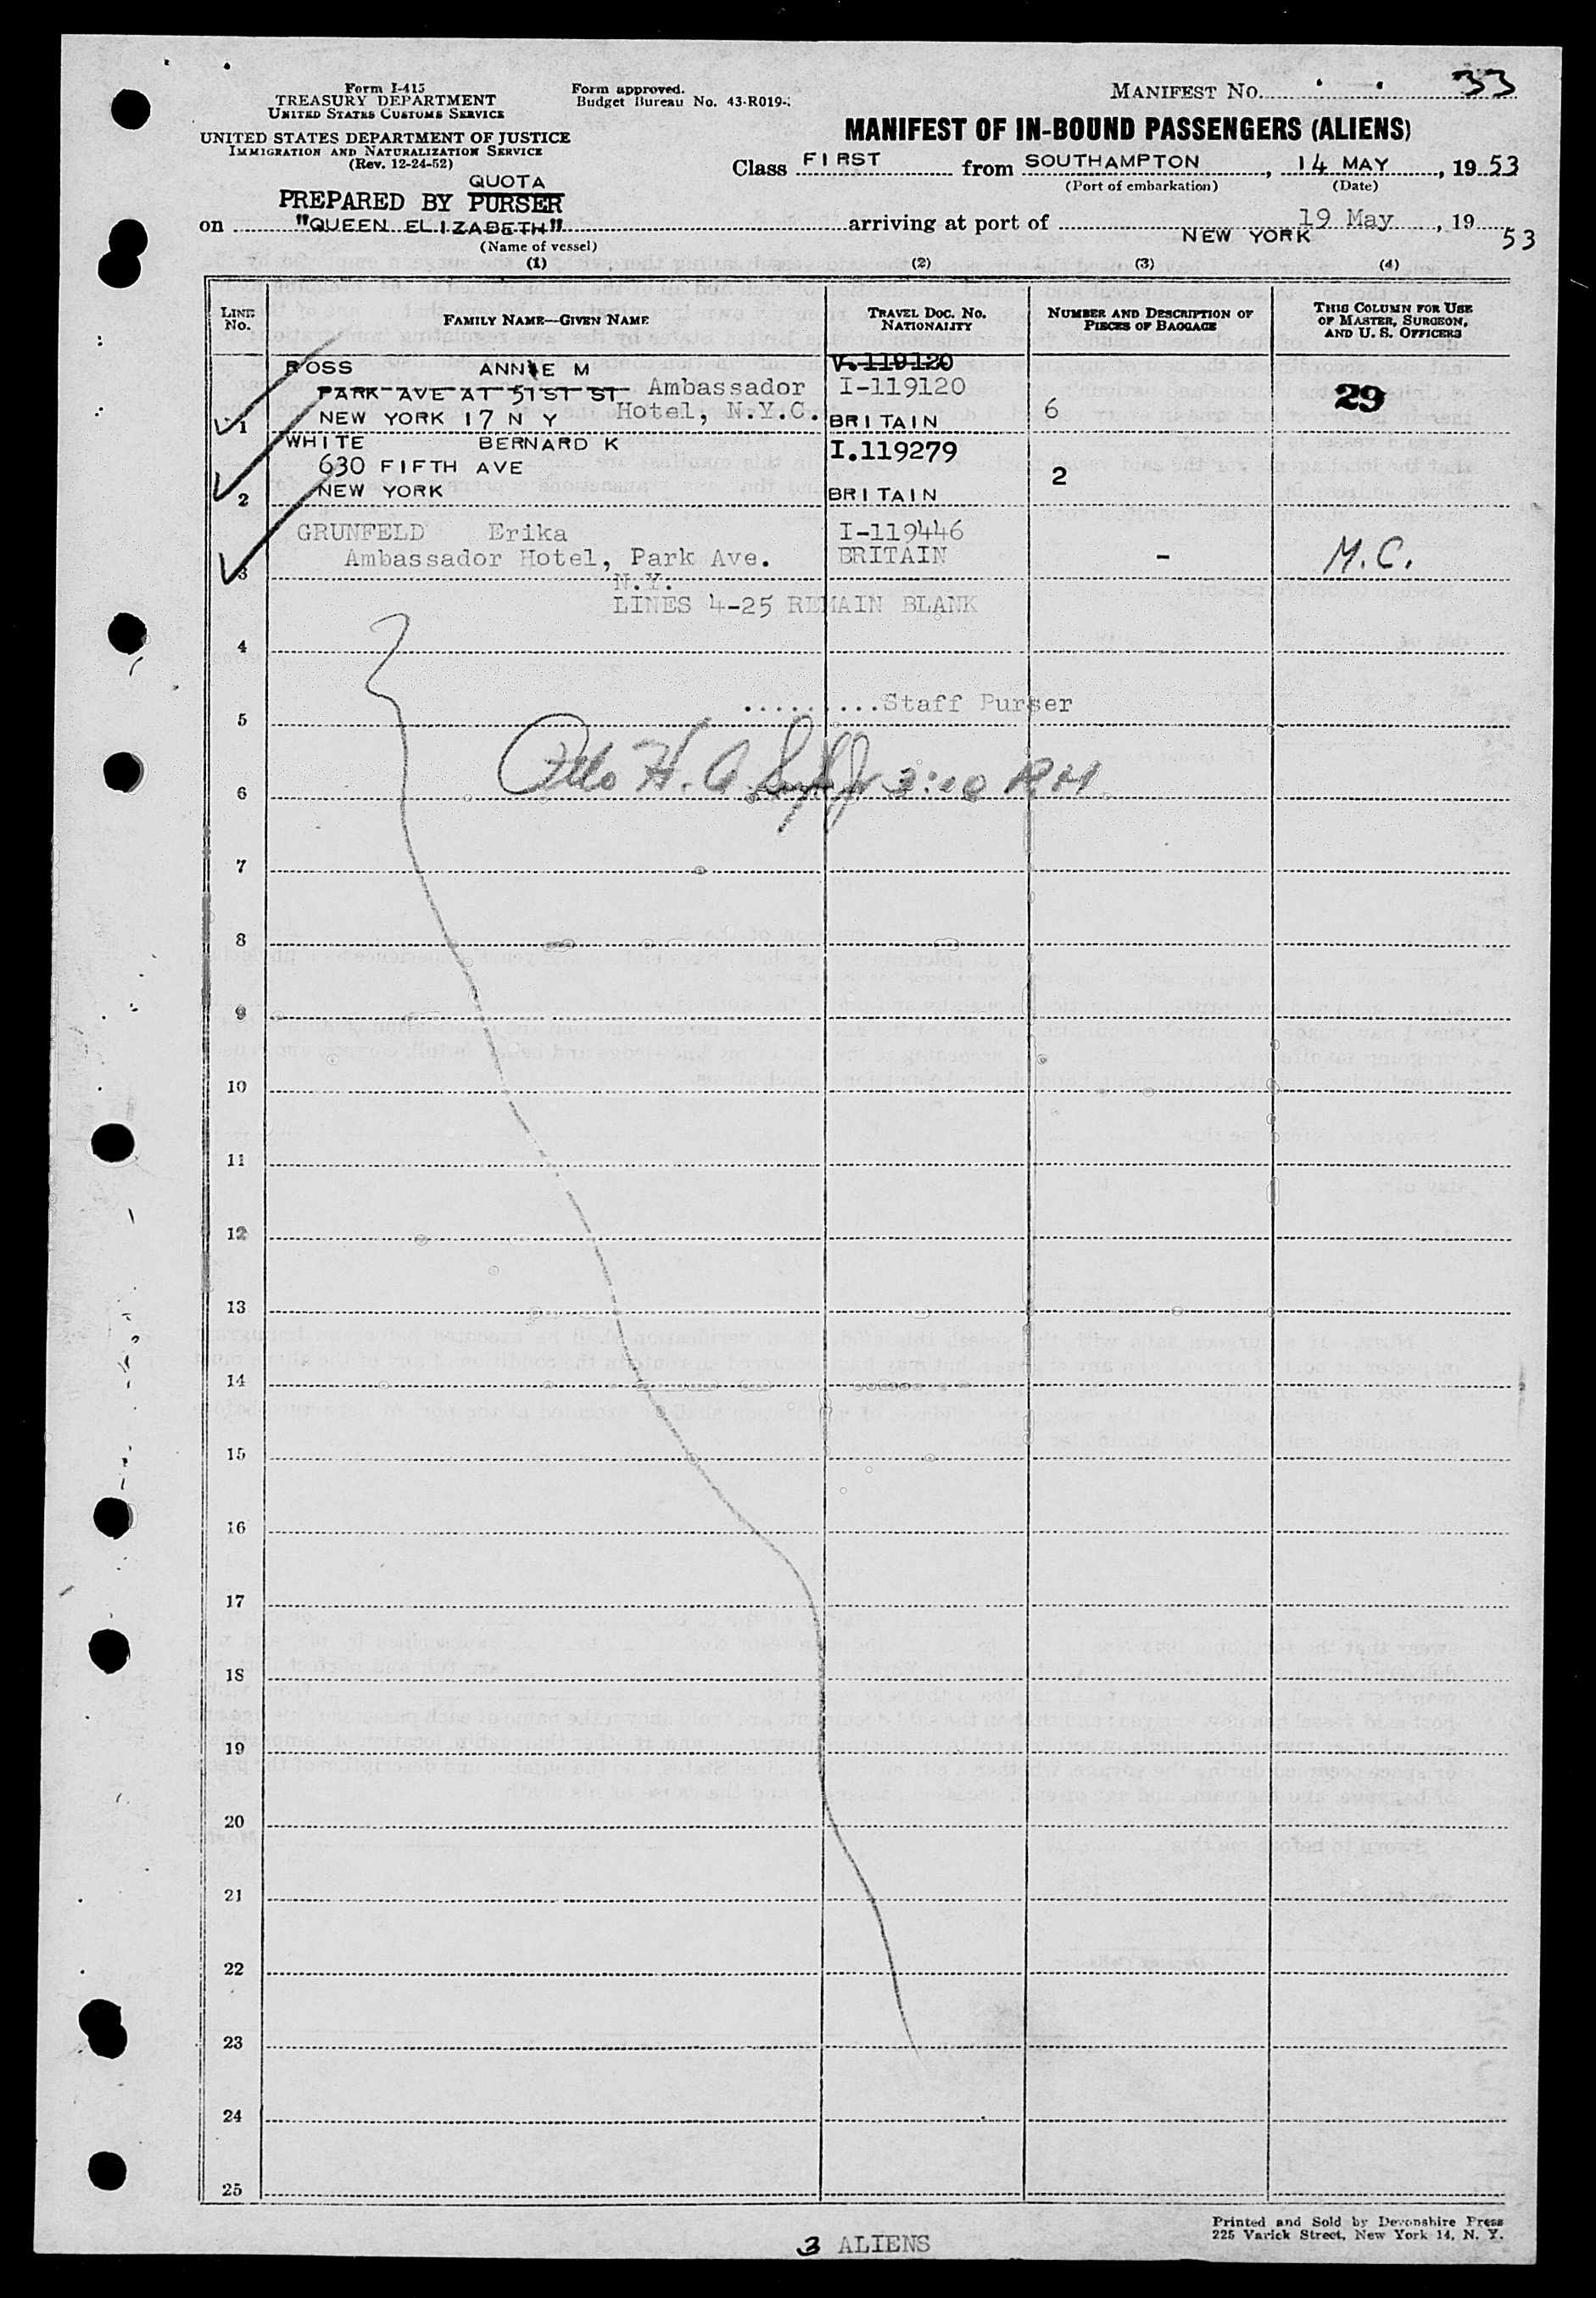 Form I-415
TREASURY DEPARTMENT
UNITED STATES CUSTOMS SERVICE
UNITED STATES DEPARTMENT OF JUSTICE
IMMIGRATION AND NATURALIZATION SERVICE
(Rev. 12-24-52)
Form approved.
Budget Bureau No. 43-R019-
MANIFEST NO. 33
MANIFEST OF IN-BOUND PASSENGERS (ALIENS)
Class FIRST from SOUTHAMPTON, 14 MAY, 1953
(Port of embarkation) (Date)
QUOTA
PREPARED BY PURSER
on "QUEEN ELIZABETH" arriving at port of NEW YORK 19 May, 19 53
(Name of vessel)
(1) (2) (3) (4)
LINE No. FAMILY NAME—GIVEN NAME TRAVEL DOC. NO. NATIONALITY NUMBER AND DESCRIPTION OF PIECES OF BAGGAGE THIS COLUMN FOR USE OF MASTER, SURGEON, AND U. S. OFFICERS
ROSS ANNIE M V.119120
PARK AVE AT 51ST ST Ambassador I-119120 29
1 NEW YORK 17 N Y Hotel, N.Y.C. BRITAIN 6
WHITE BERNARD K I.119279
630 FIFTH AVE 2
2 NEW YORK BRITAIN
GRUNFELD Erika I-119446
Ambassador Hotel, Park Ave. BRITAIN - M.C.
3 N.Y.
LINES 4-25 REMAIN BLANK
4
.........Staff Purser
5
Otto H. A. 3:00 PM
6
7
8
9
10
11
12
13
14
15
16
17
18
19
20
21
22
23
24
25
3 ALIENS
Printed and Sold by Devonshire Press
225 Varick Street, New York 14, N. Y.